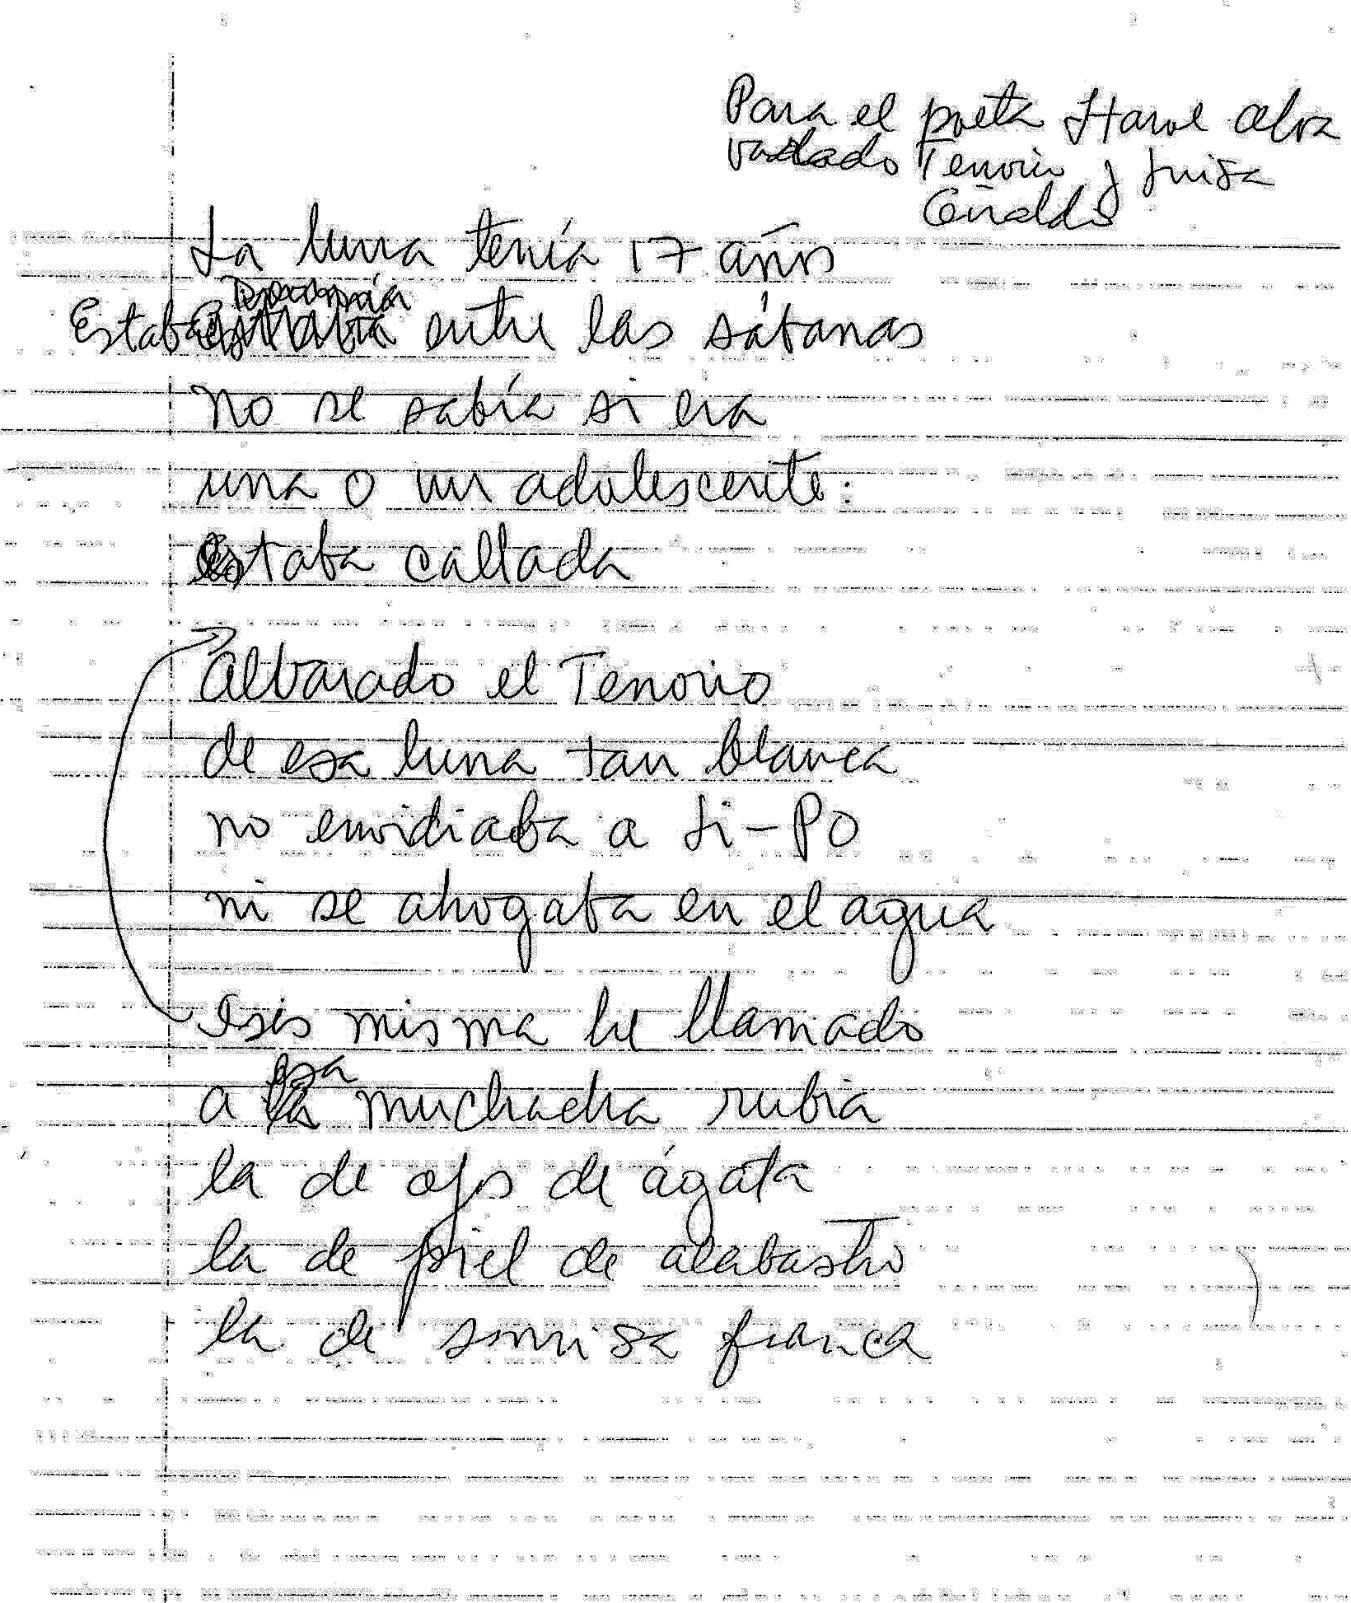 Para el poeta Harol Alva
rado Tenorio y Luisa
La luna tenía 17 años
Estaba entre las sátanas
No se sabía si era
una o un adolescente:
Estaba callada
Albarado el Tenorio
de esa luna tan blanca
no envidiaba a Li-PO
ni se ahogaba en el agua
Isis misma he llamado
a esa muchacha rubia
la de ojos de ágata
la de piel de alabastro
la de sonrisa franca